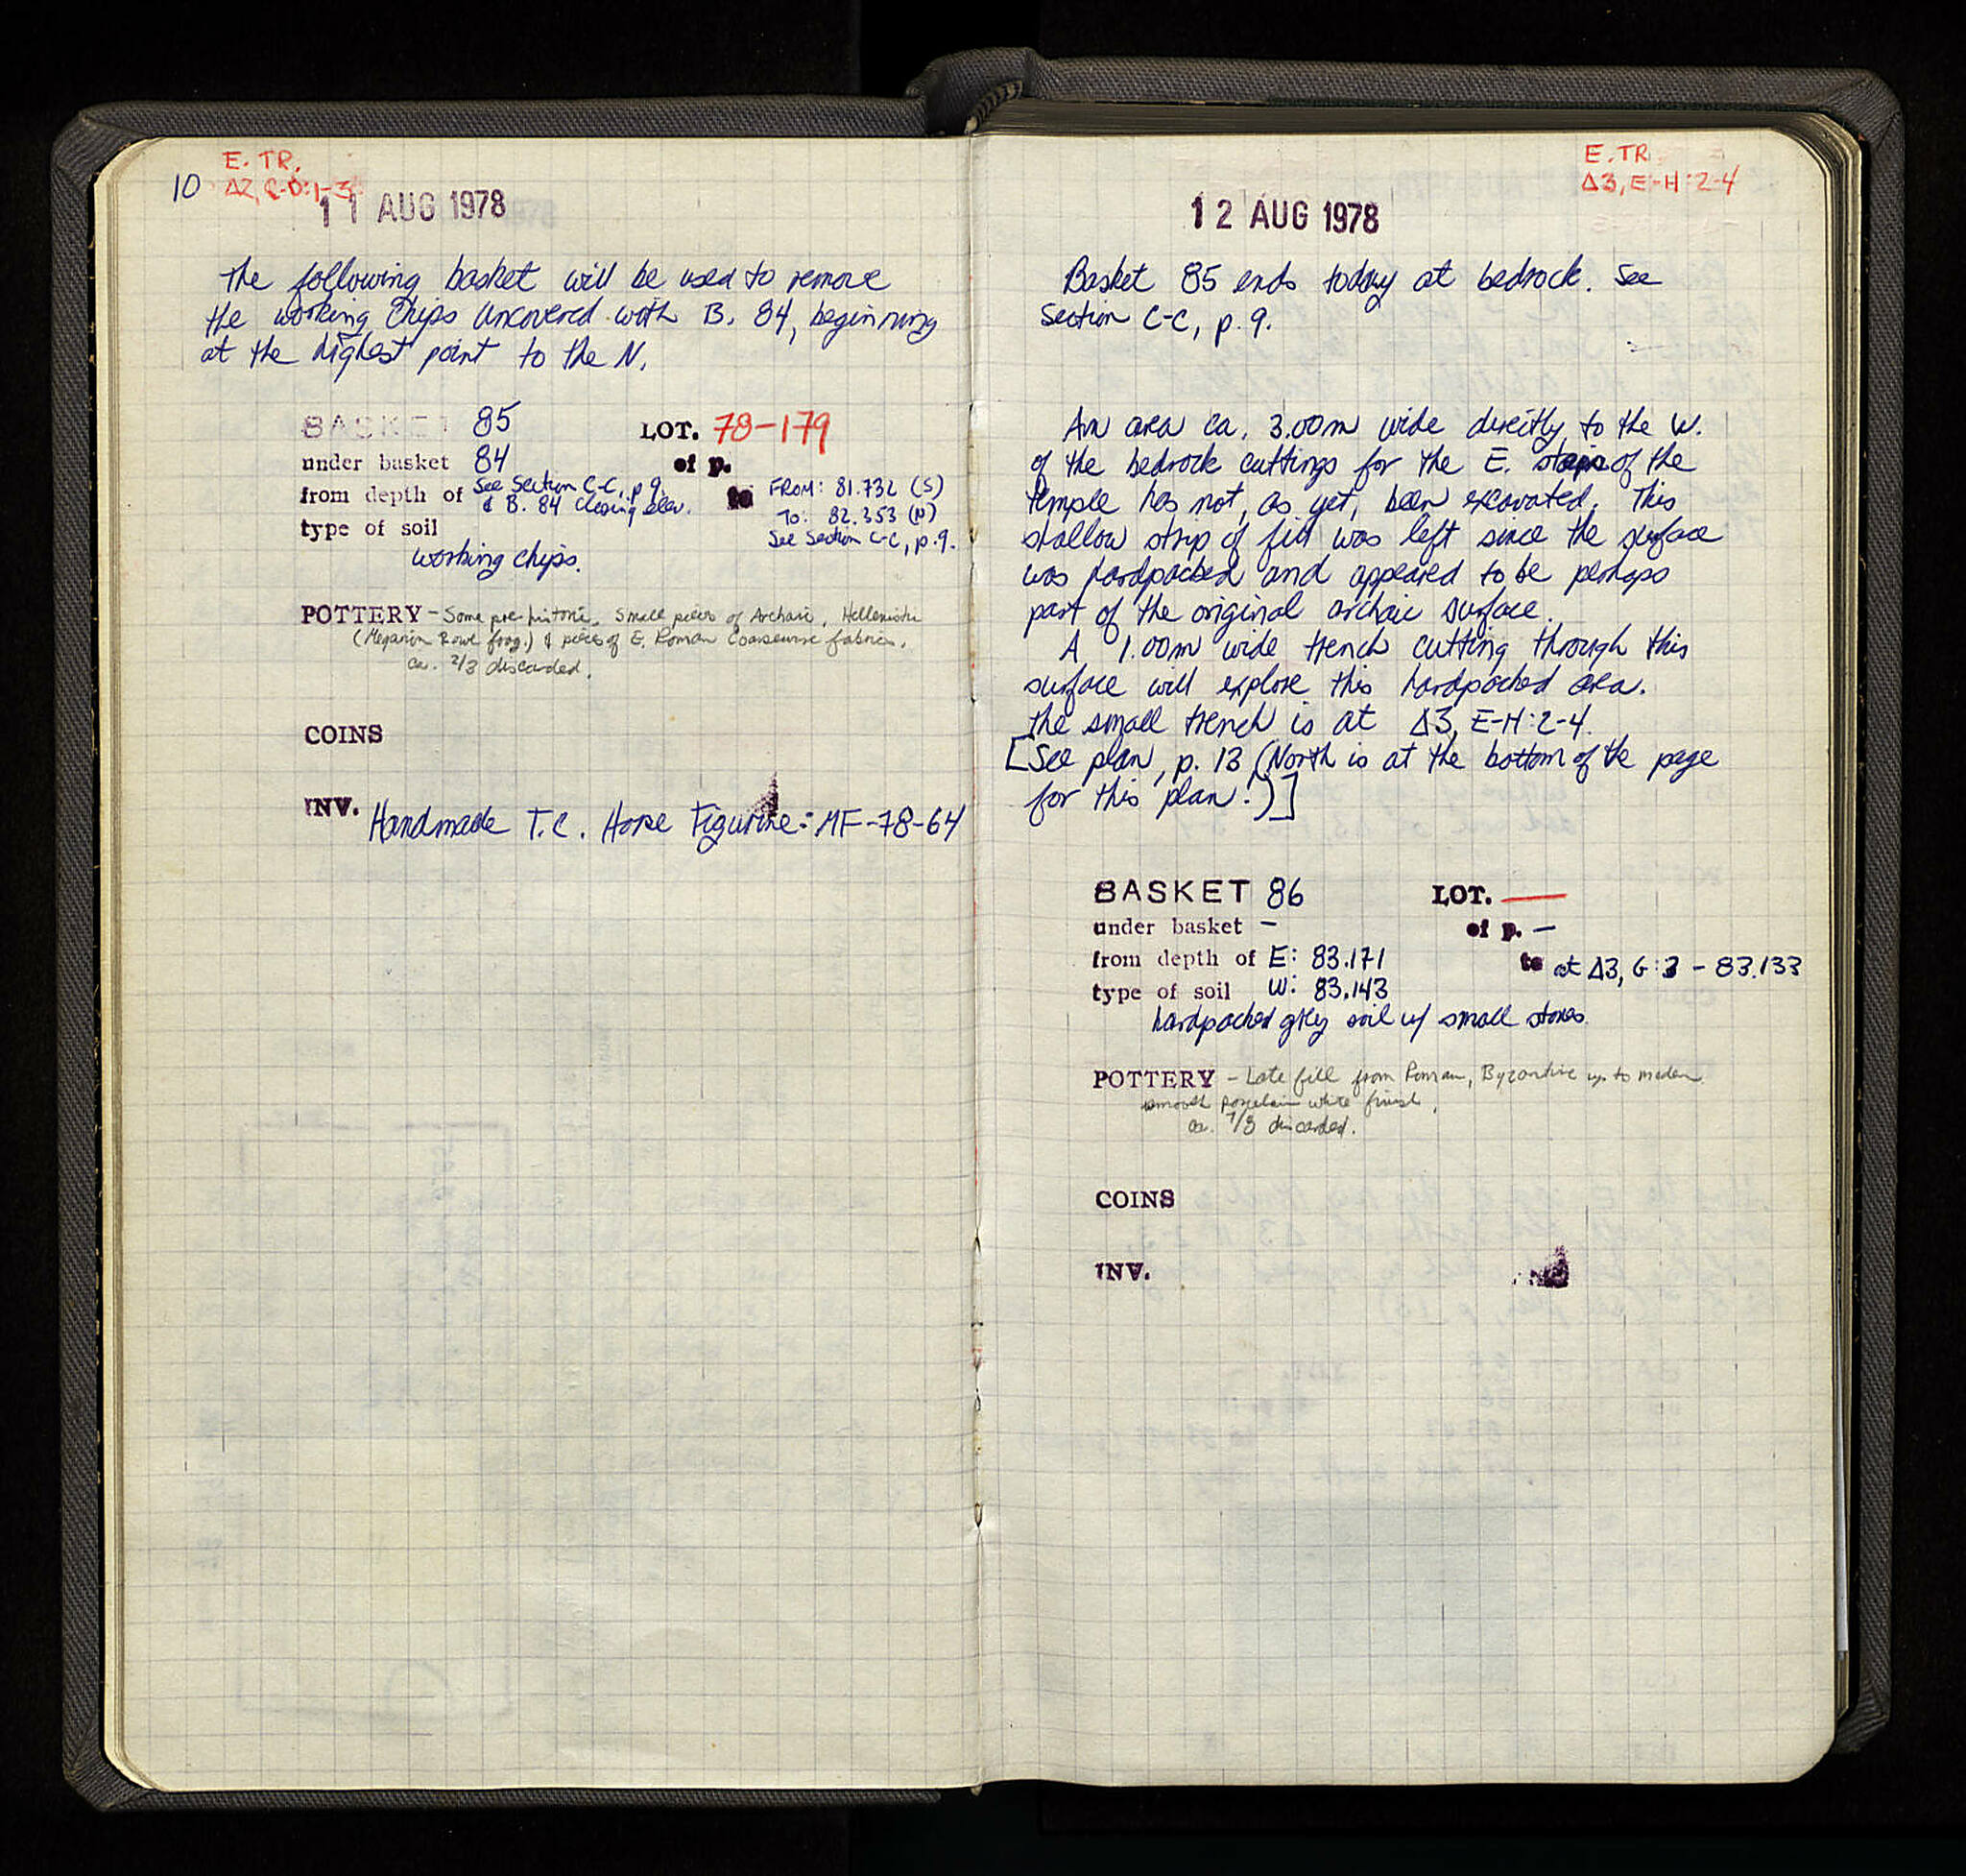 10 E. TR.
Δ2, C-D:1-3
11 AUG 1978
The following basket will be used to remove
the working chips uncovered with B. 84, beginning
at the highest point to the N.
BASKET 85 LOT. 78-179
under basket 84 of p.
from depth of See Section C-C, p 9 to FROM: 81.732 (S)
& B. 84 closing elev. TO: 82.353 (N)
type of soil See Section C-C, p.9.
working chips.
POTTERY - Some prehistoric. Small pieces of Archaic, Hellenistic
(Megarian Bowl frag.) & pieces of E. Roman coarseware fabrics.
ca. 2/3 discarded.
COINS
INV. Handmade T.C. Horse Figurine: MF-78-64
E. TR
Δ3, E-H:2-4
12 AUG 1978
Basket 85 ends today at bedrock. See
Section C-C, p. 9.
An area ca. 3.00m wide directly to the W.
of the bedrock cuttings for the E. steps of the
temple has not, as yet, been excavated. This
shallow strip of fill was left since the surface
was hardpacked and appeared to be perhaps
part of the original archaic surface.
A 1.00m wide trench cutting through this
surface will explore this hardpacked area.
The small trench is at Δ3, E-H:2-4.
[See plan, p. 13 (North is at the bottom of the page
for this plan!)]
BASKET 86 LOT. —
under basket – of p. –
from depth of E: 83.171 to at Δ3, G:3 - 83.133
type of soil W: 83.143
hardpacked grey soil w/ small stones
POTTERY - Late fill from Roman, Byzantine up to modern
smooth porcelain white finish.
ca. 7/8 discarded.
COINS
INV.